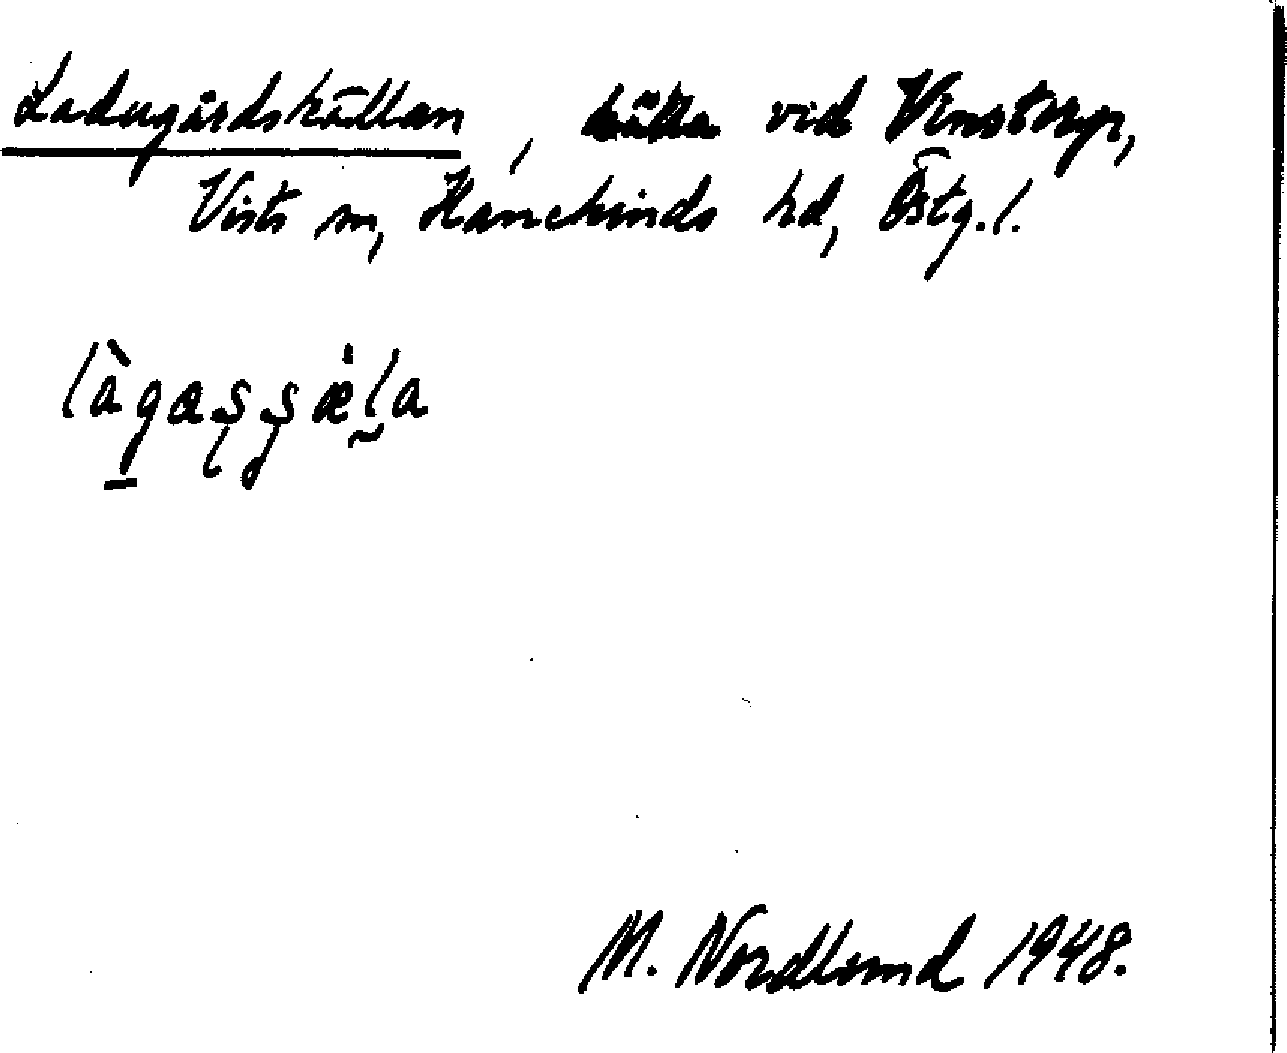 Ladugårdskällan, källa vid Vinstorp,
Vists sn, Hanekinds hd, Östg. l.
làgaşşæ̀la
M. Nordlund 1948.